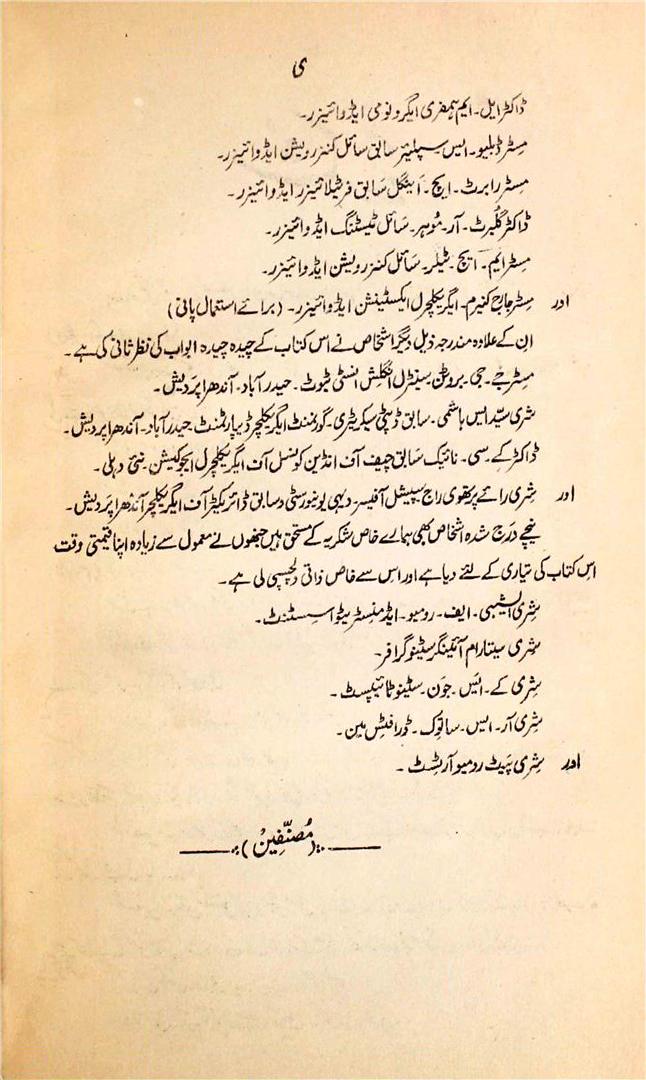 ی
ڈاکٹر ایل۔ ایم ہمفری ایگرونومی ایڈوائیزر۔
مسٹر ڈبلیو۔ ایس سپلیئر سابق سائل کنزرویشن ایڈوائیزر۔
مسٹر رابرٹ۔ ایچ۔ اینگل سابق فرٹیلائیزر ایڈوائیزر۔
ڈاکٹر گلبرٹ۔ آر۔ موہر۔ سائل ٹیسٹنگ ایڈوائیزر۔
مسٹر ایم۔ ایچ۔ ٹیلر۔ سائل کنزرویشن ایڈوائیزر۔
اور مسٹر جارج کنیرم۔ ایگریکلچرل ایکسٹینشن ایڈوائیزر۔ (برائے استعمال پانی)
اِن کے علاوہ مندرجہ ذیل دیگر اشخاص نے اس کتاب کے چیدہ چیدہ ابواب کی نظر ثانی کی ہے۔
مسٹر جے۔ جی۔ بروٹن سینٹرل انگلش انسٹی ٹیوٹ۔ حیدر آباد۔ آندھرا پردیش۔
شری سیّد ایس ہاشمی۔ سابق ڈپٹی سیکریٹری۔ گورنمنٹ ایگریکلچر ڈیپارٹمنٹ حیدر آباد۔ آندھرا پردیش۔
ڈاکٹر کے۔ سی۔ نائیک سابق چیف آف انڈین کونسل آف ایگریکلچرل ایجوکیشن۔ نئی دہلی۔
اور شری رائے پرتھوی راج سپیشل آفیسر۔ دیہی یونیورسٹی و سابق ڈائریکٹر آف ایگریکلچر آندھرا پردیش۔
نیچے درج شدہ اشخاص بھی ہمارے خاص شکریہ کے مستحق ہیں جنھوں نے معمول سے زیادہ اپنا قیمتی وقت
اِس کتاب کی تیاری کے لئے دیا ہے اور اس سے خاص ذاتی دلچسپی لی ہے۔
شری ایف۔ رومیو۔ ایڈمنسٹریٹو اسسٹنٹ۔
شری سیتارام آئینگر سٹینوگرافر۔
شری کے۔ ایس۔ جون۔ سٹینو ٹائیپسٹ۔
شری آر۔ ایس۔ ساٹوک۔ ڈرافٹس مین۔
اور شری پیٹ رومیو آرٹسٹ۔
(مُصنّفِین)